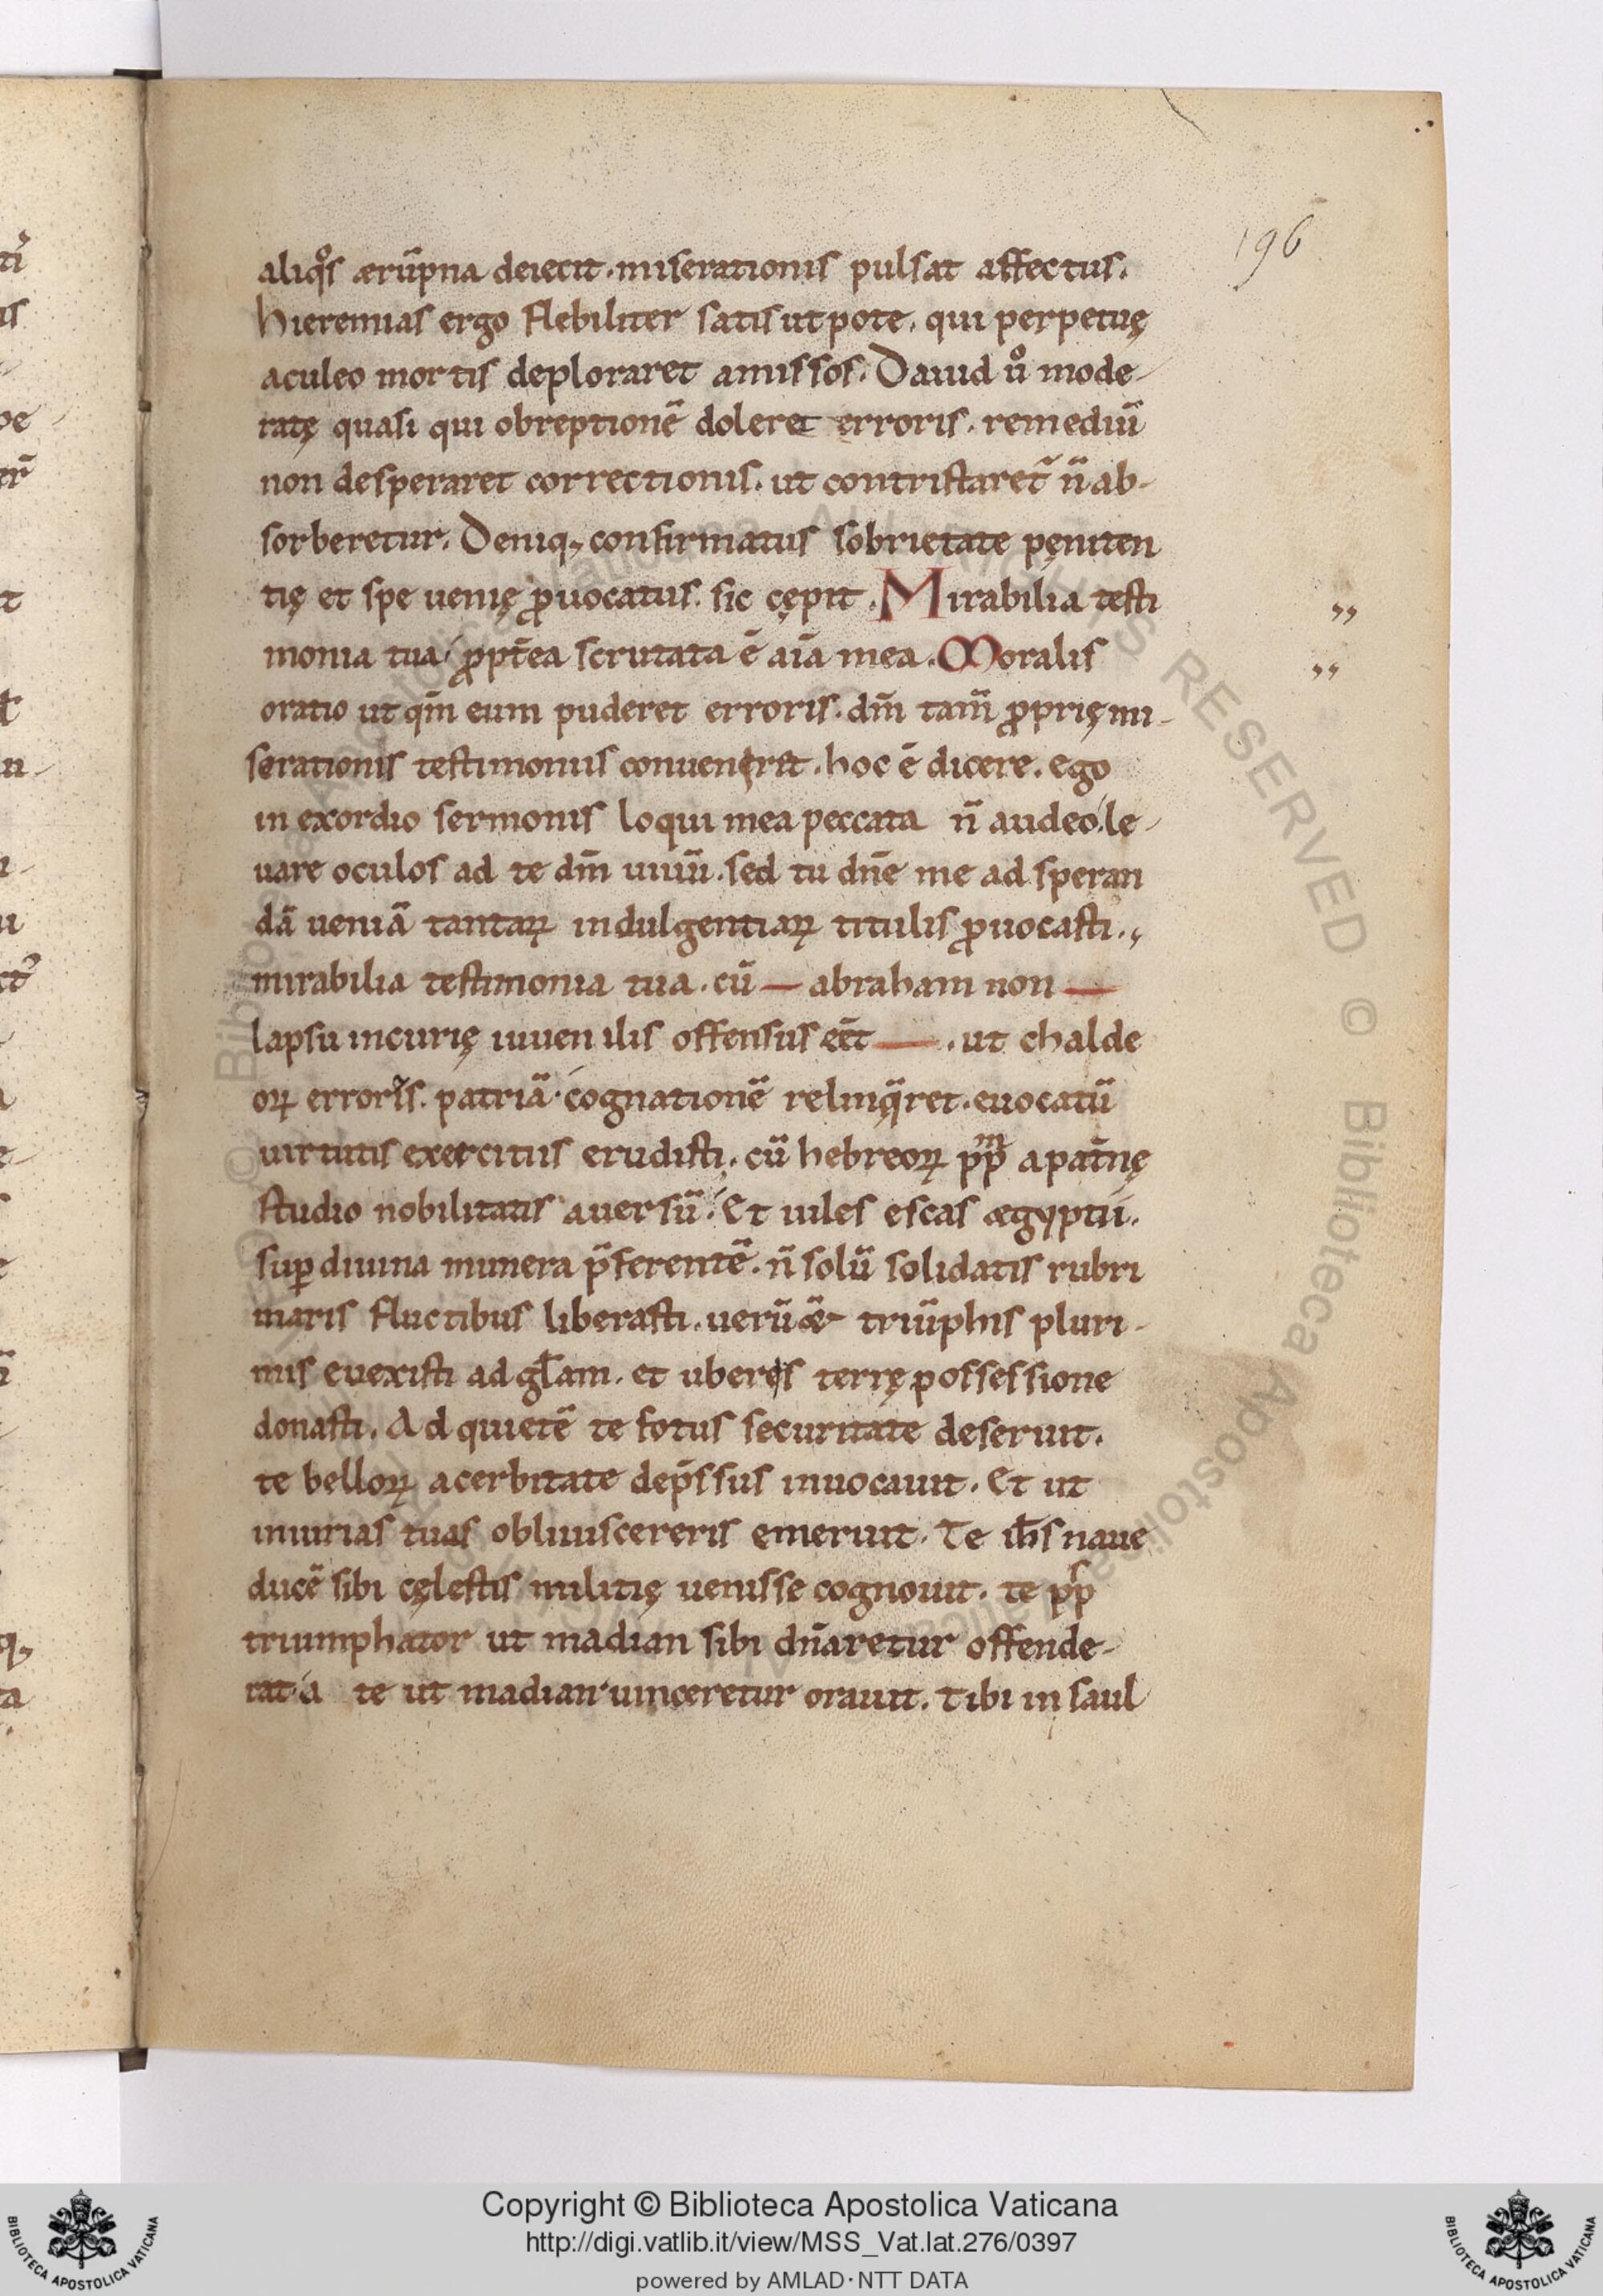 196
aliqͦs ærūpna deiecit. miserationis pulsat affectus.
hieremias ergo flebiliter satis utpote. qui perpetuę
aculeo mortis deploraret amissos. Dauid uͦ mode-
ratę quasi qui obreptionē doleret erroris. remediū
non desperaret correctionis. ut contristaret᷑ n̄ ab-
sorberetur. Deniq; confirmatus sobrietate pęniten
tię et spe uenię ꝓuocatus. sic cępit. Mirabilia testi „
monia tua; ꝓpt̄ea scrutata ē aīa mea. Moralis „
oratio ut qm̄ eum puderet erroris. dm̄ tam̄ ꝓprię mi-
serationis testimoniis conuenerit. hoc ē dicere. ego
in exordio sermonis loqui mea peccata n̄ audeo; le-
uare oculos ad te dm̄ uiuū. sed tu dn̄e me ad speran
dā ueniā tantaꝝ indulgentiaꝝ titulis ꝓuocasti.,
mirabilia testimonia tua. cū — abraham non —
lapsu incurię iuuenilis offensus eēt — . ut chalde
oꝝ erroris. patriā. cognationē relinq̄ret. euocatū
uirtutis exercitiis erudisti. cū hebreoꝝ pp̄m a pat̄nę
studio nobilitatis auersū. Et uiles escas ægyptii.
suꝑ diuina munera p̄ferentē. n̄ solū solidatis rubri
maris fluctibus liberasti. uerū &̄ triūphis pluri-
mis euexisti ad gl̄am. et uberis terrę possessione
donasti. Ad quietē te fotus securitate deseruit.
te belloꝝ acerbitate dep̄ssus inuocauit. Et ut
iniurias tuas obliuiscereris emeruit. Te ih̄s naue
ducē sibi cęlestis militię uenisse cognouit. te pp̄s
triumphator ut madian sibi dn̄aretur offende-
rat a te ut madian uinceretur orauit. Tibi in saul
Copyright © Biblioteca Apostolica Vaticana
http://digi.vatlib.it/view/MSS_Vat.lat.276/0397
powered by AMLAD·NTT DATA
BIBLIOTECA APOSTOLICA VATICANA
BIBLIOTECA APOSTOLICA VATICANA